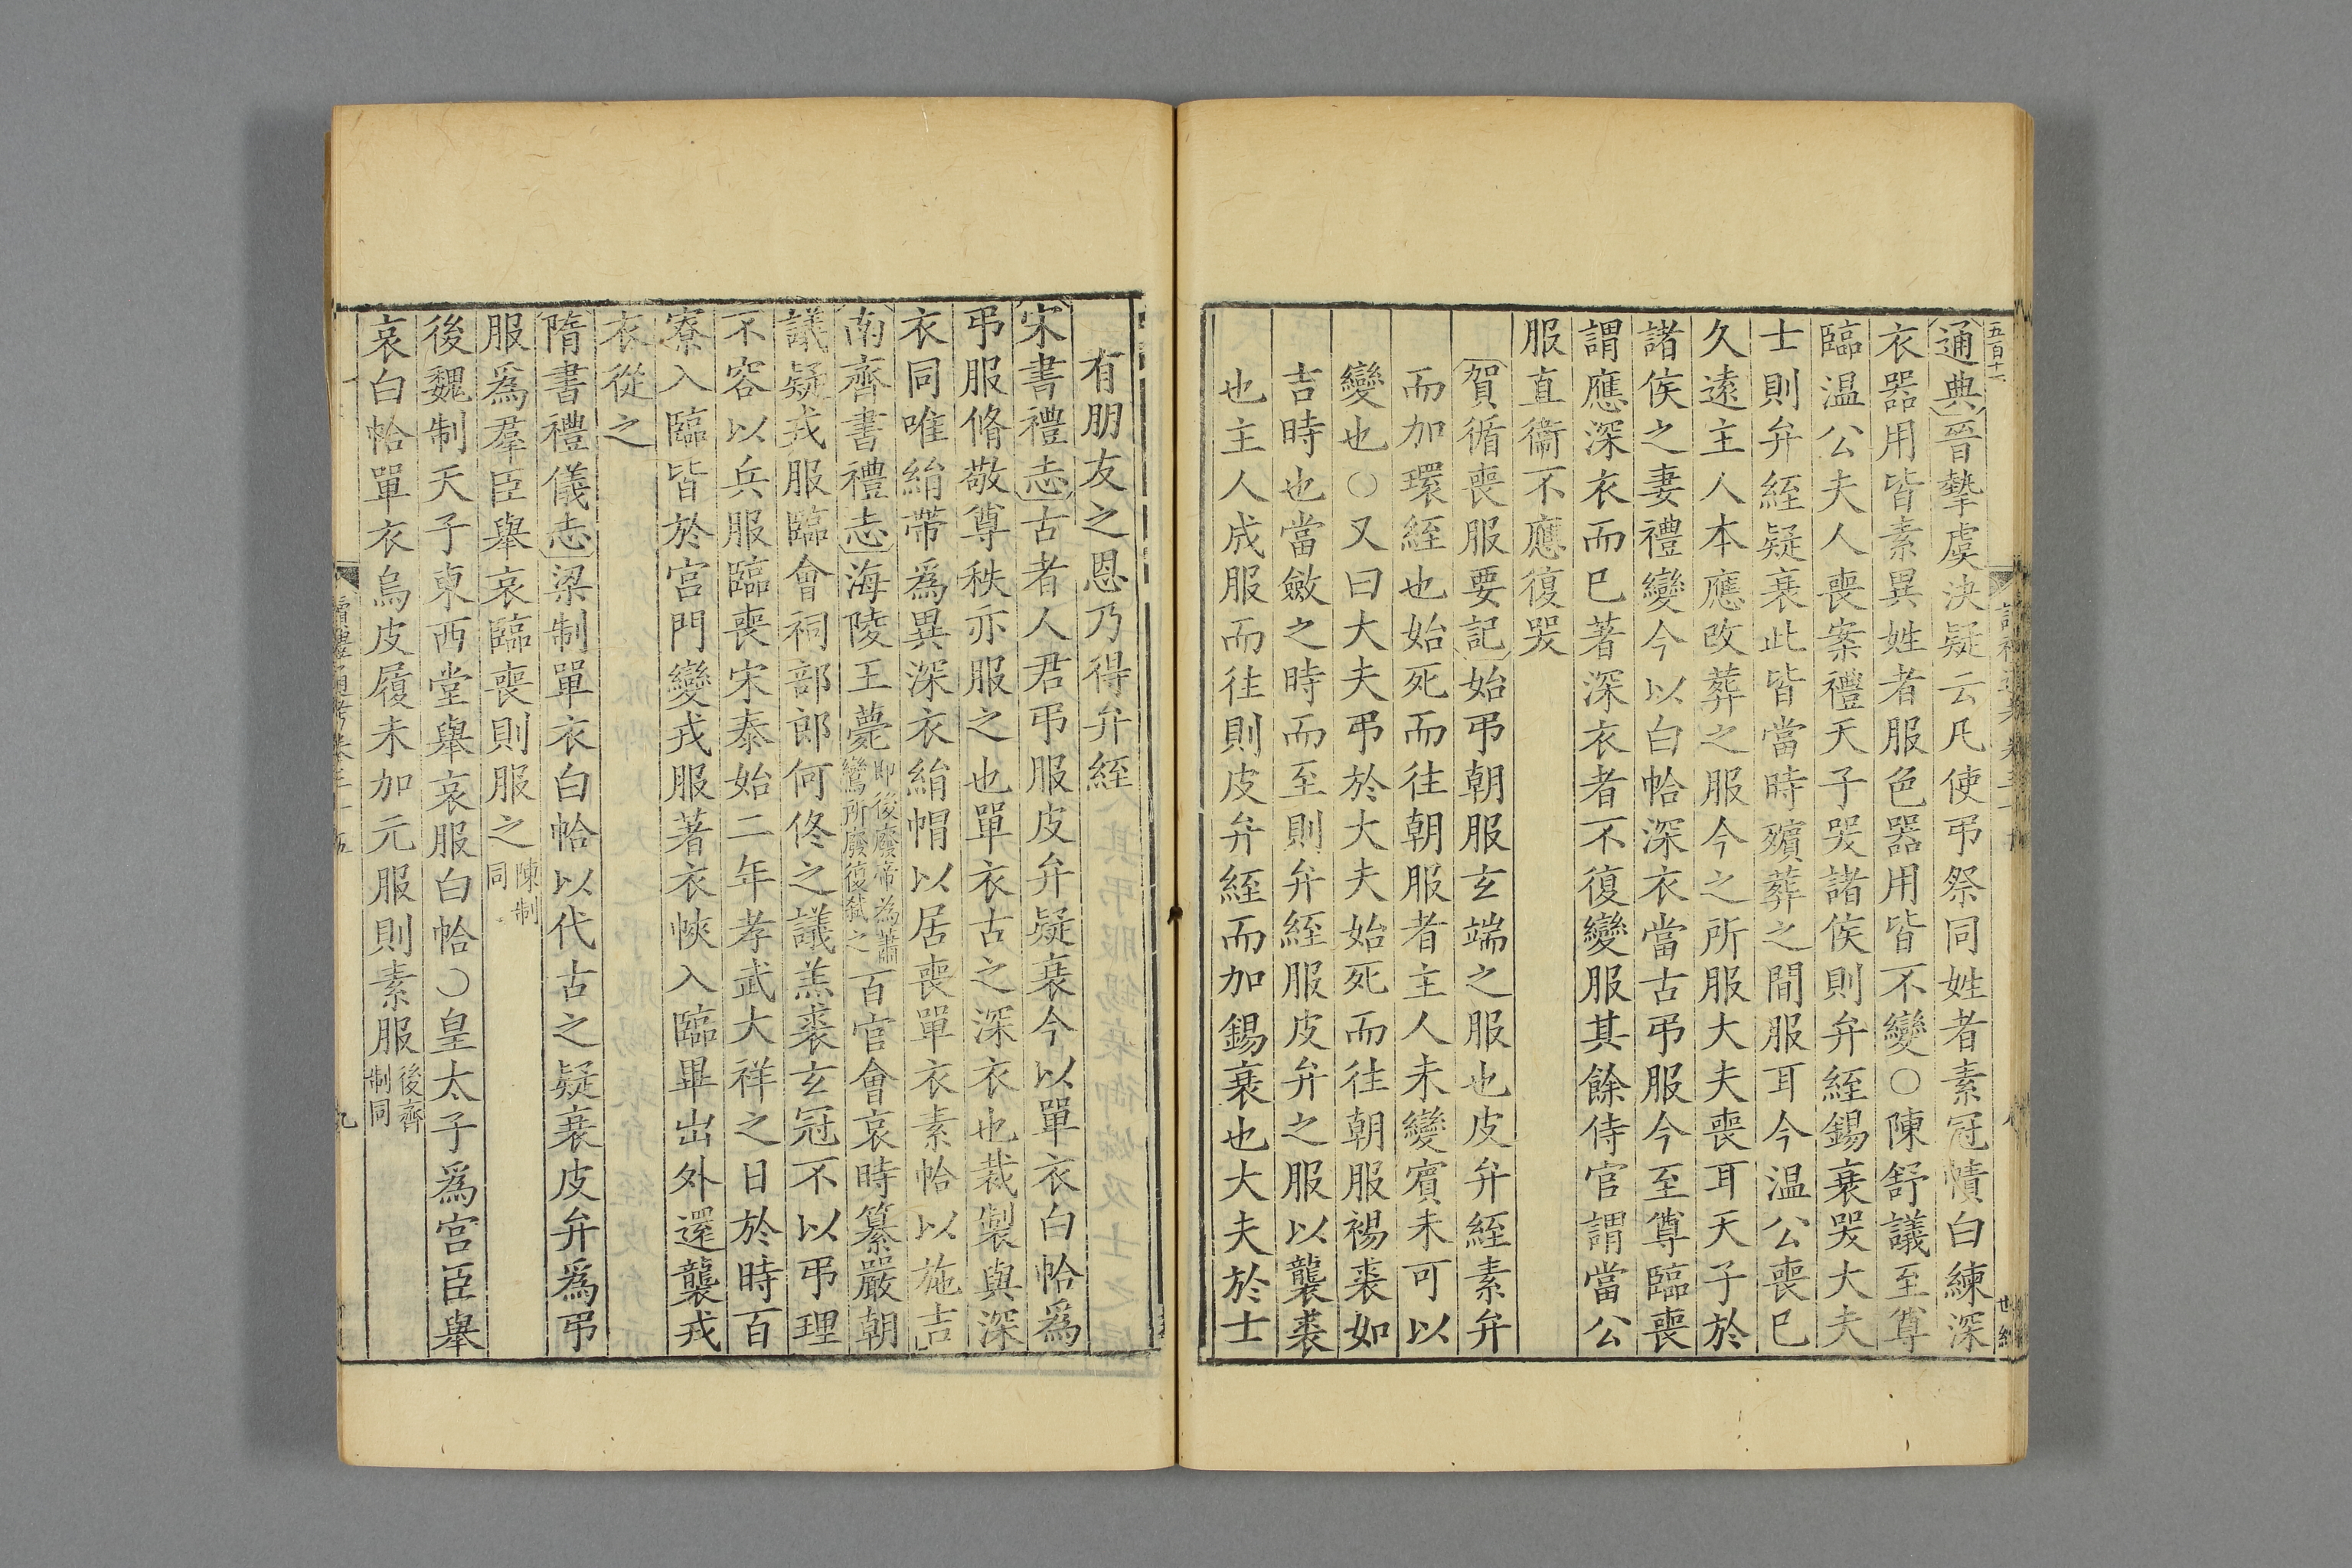 五百十一
通典晉摯虞決疑云凡使弔祭同姓者素冠幘白練深
衣器用皆素異姓者服色器用皆不變○陳舒議至尊
臨温公夫人喪案禮天子哭諸侯則弁絰錫衰哭大夫
士則弁絰疑衰此皆當時殯葬之間服耳今温公喪已
久遠主人本應改葬之服今之所服大夫喪耳天子於
諸侯之妻禮變今以白帢深衣當古弔服今至尊臨喪
謂應深衣而已著深衣者不復變服其餘侍官謂當公
服直衞不應復哭
賀循喪服要記始弔朝服玄端之服也皮弁絰素弁
而加環絰也始死而往朝服者主人未變賓未可以
變也○又曰大夫弔於大夫始死而往朝服裼裘如
吉時也當斂之時而至則弁絰服皮弁之服以襲裘
也主人成服而往則皮弁絰而加錫衰也大夫於士
有朋友之恩乃得弁絰
宋書禮志古者人君弔服皮弁疑衰今以單衣白帢爲
弔服脩敬尊秩亦服之也單衣古之深衣也裁製與深
衣同唯絹帶爲異深衣絹帽以居喪單衣素帢以施吉
南齊書禮志海陵王薨即後廢帝為蕭鸞所廢復弒之百官會哀時纂嚴朝
議疑戎服臨會祠部郎何佟之議羔裘玄冠不以弔理
不容以兵服臨喪宋泰始二年孝武大祥之日於時百
寮入臨皆於宫門變戎服著衣帢入臨畢出外還襲戎
衣從之
隋書禮儀志梁制單衣白帢以代古之疑衰皮弁爲弔
服爲羣臣舉哀臨喪則服之陳制同
後魏制天子東西堂舉哀服白帢○皇太子爲宫臣舉
哀白帢單衣烏皮履未加元服則素服後齊制同
讀禮通考卷三十五
九